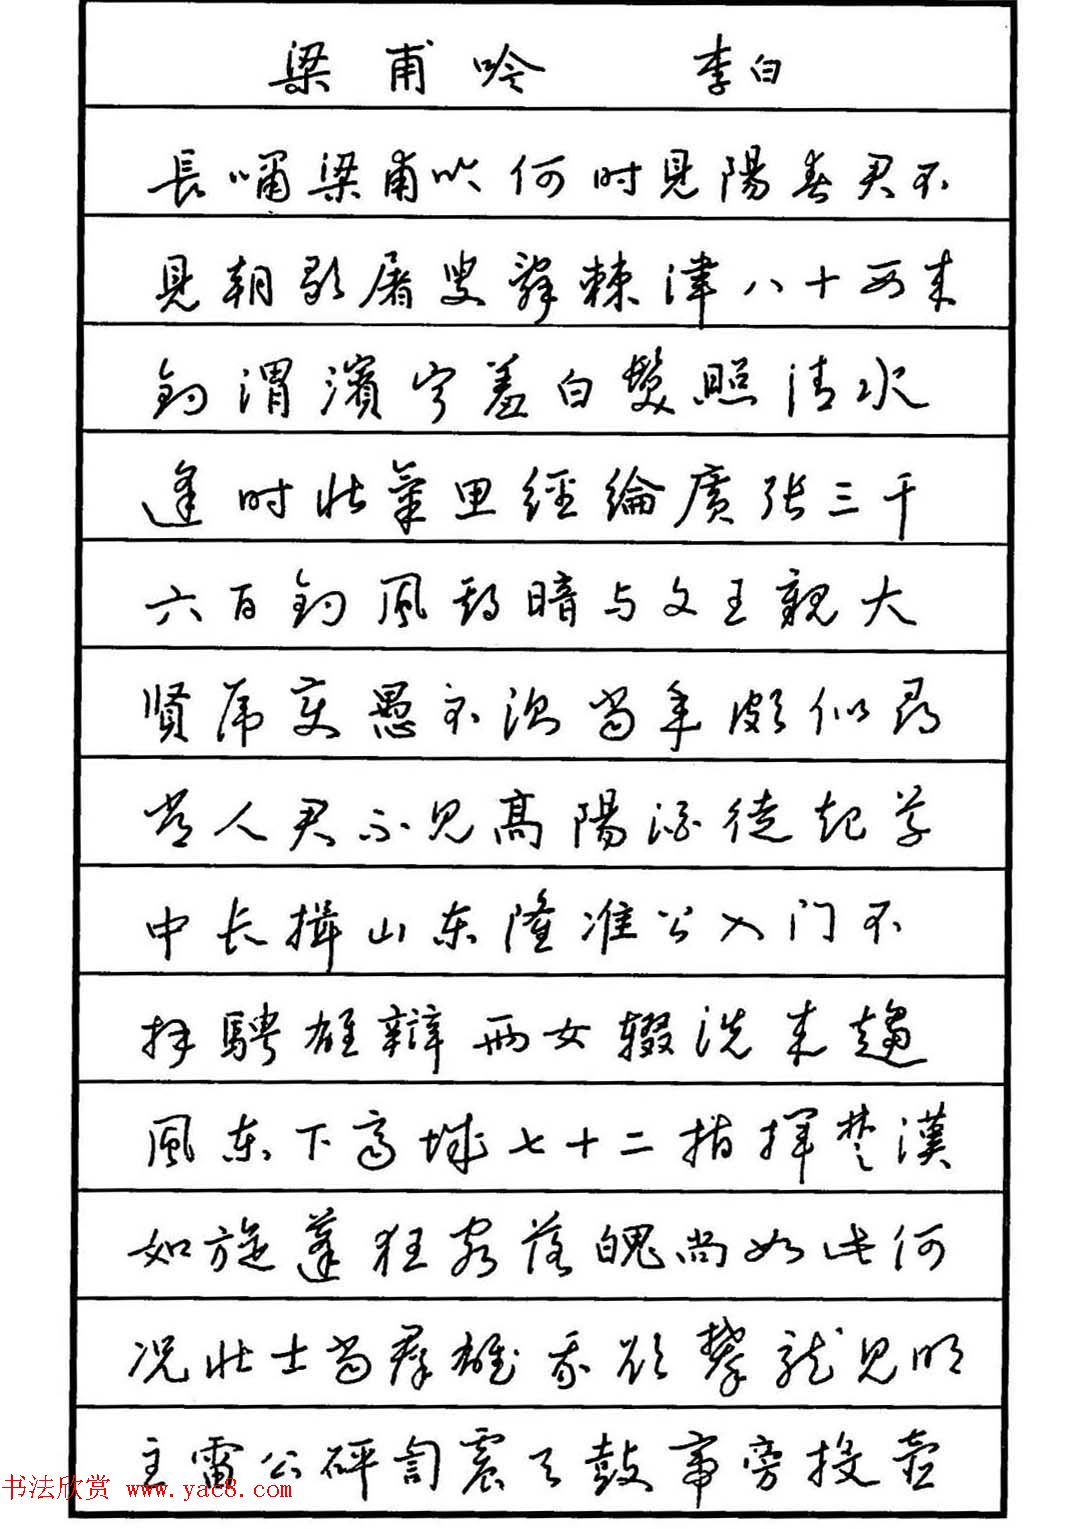 梁甫吟 李白
長嘯梁甫吟何时見陽春君不
見朝歌屠叟辭棘津八十西来
釣渭濱宁羞白髮照清水
逢时壮氣思經綸廣张三千
六百釣風期暗与文王親大
贤虎变愚不测当年頗似尋
常人君不见高陽酒徒起草
中长揖山东隆准公入门不
拜騁雄辩两女辍洗来趨
風东下齐城七十二指挥楚漢
如旋蓬狂客落魄尚如此何
况壮士当群雄我欲攀龙见明
主雷公砰訇震天鼓帝旁投壶
书法欣赏 www.yac8.com